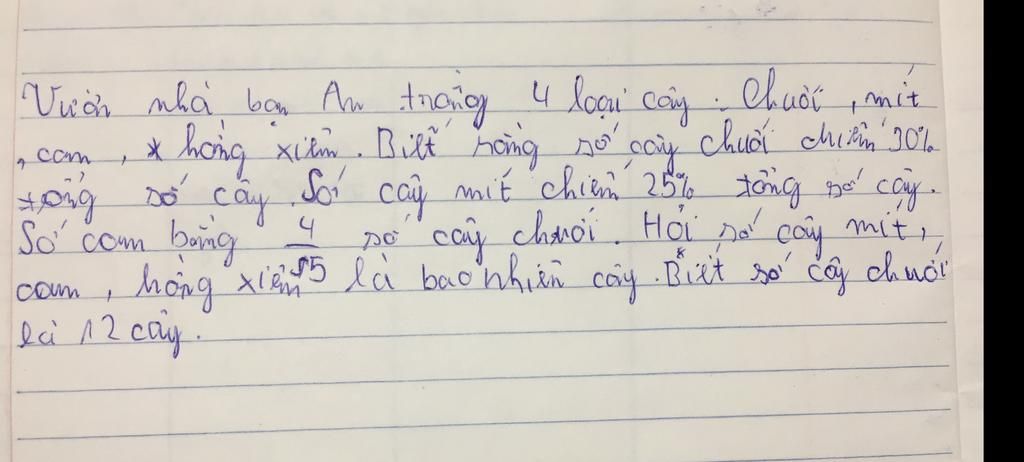 Vườn nhà bạn An trồng 4 loại cây: Chuối, mít
, cam, hồng xiêm. Biết rằng số cây chuối chiếm 30%
tổng số cây. Số cây mít chiếm 25% tổng số cây.
Số cam bằng 4/5 số cây chuối. Hỏi số cây mít,
cam, hồng xiêm là bao nhiên cây. Biết số cây chuối
là 12 cây.